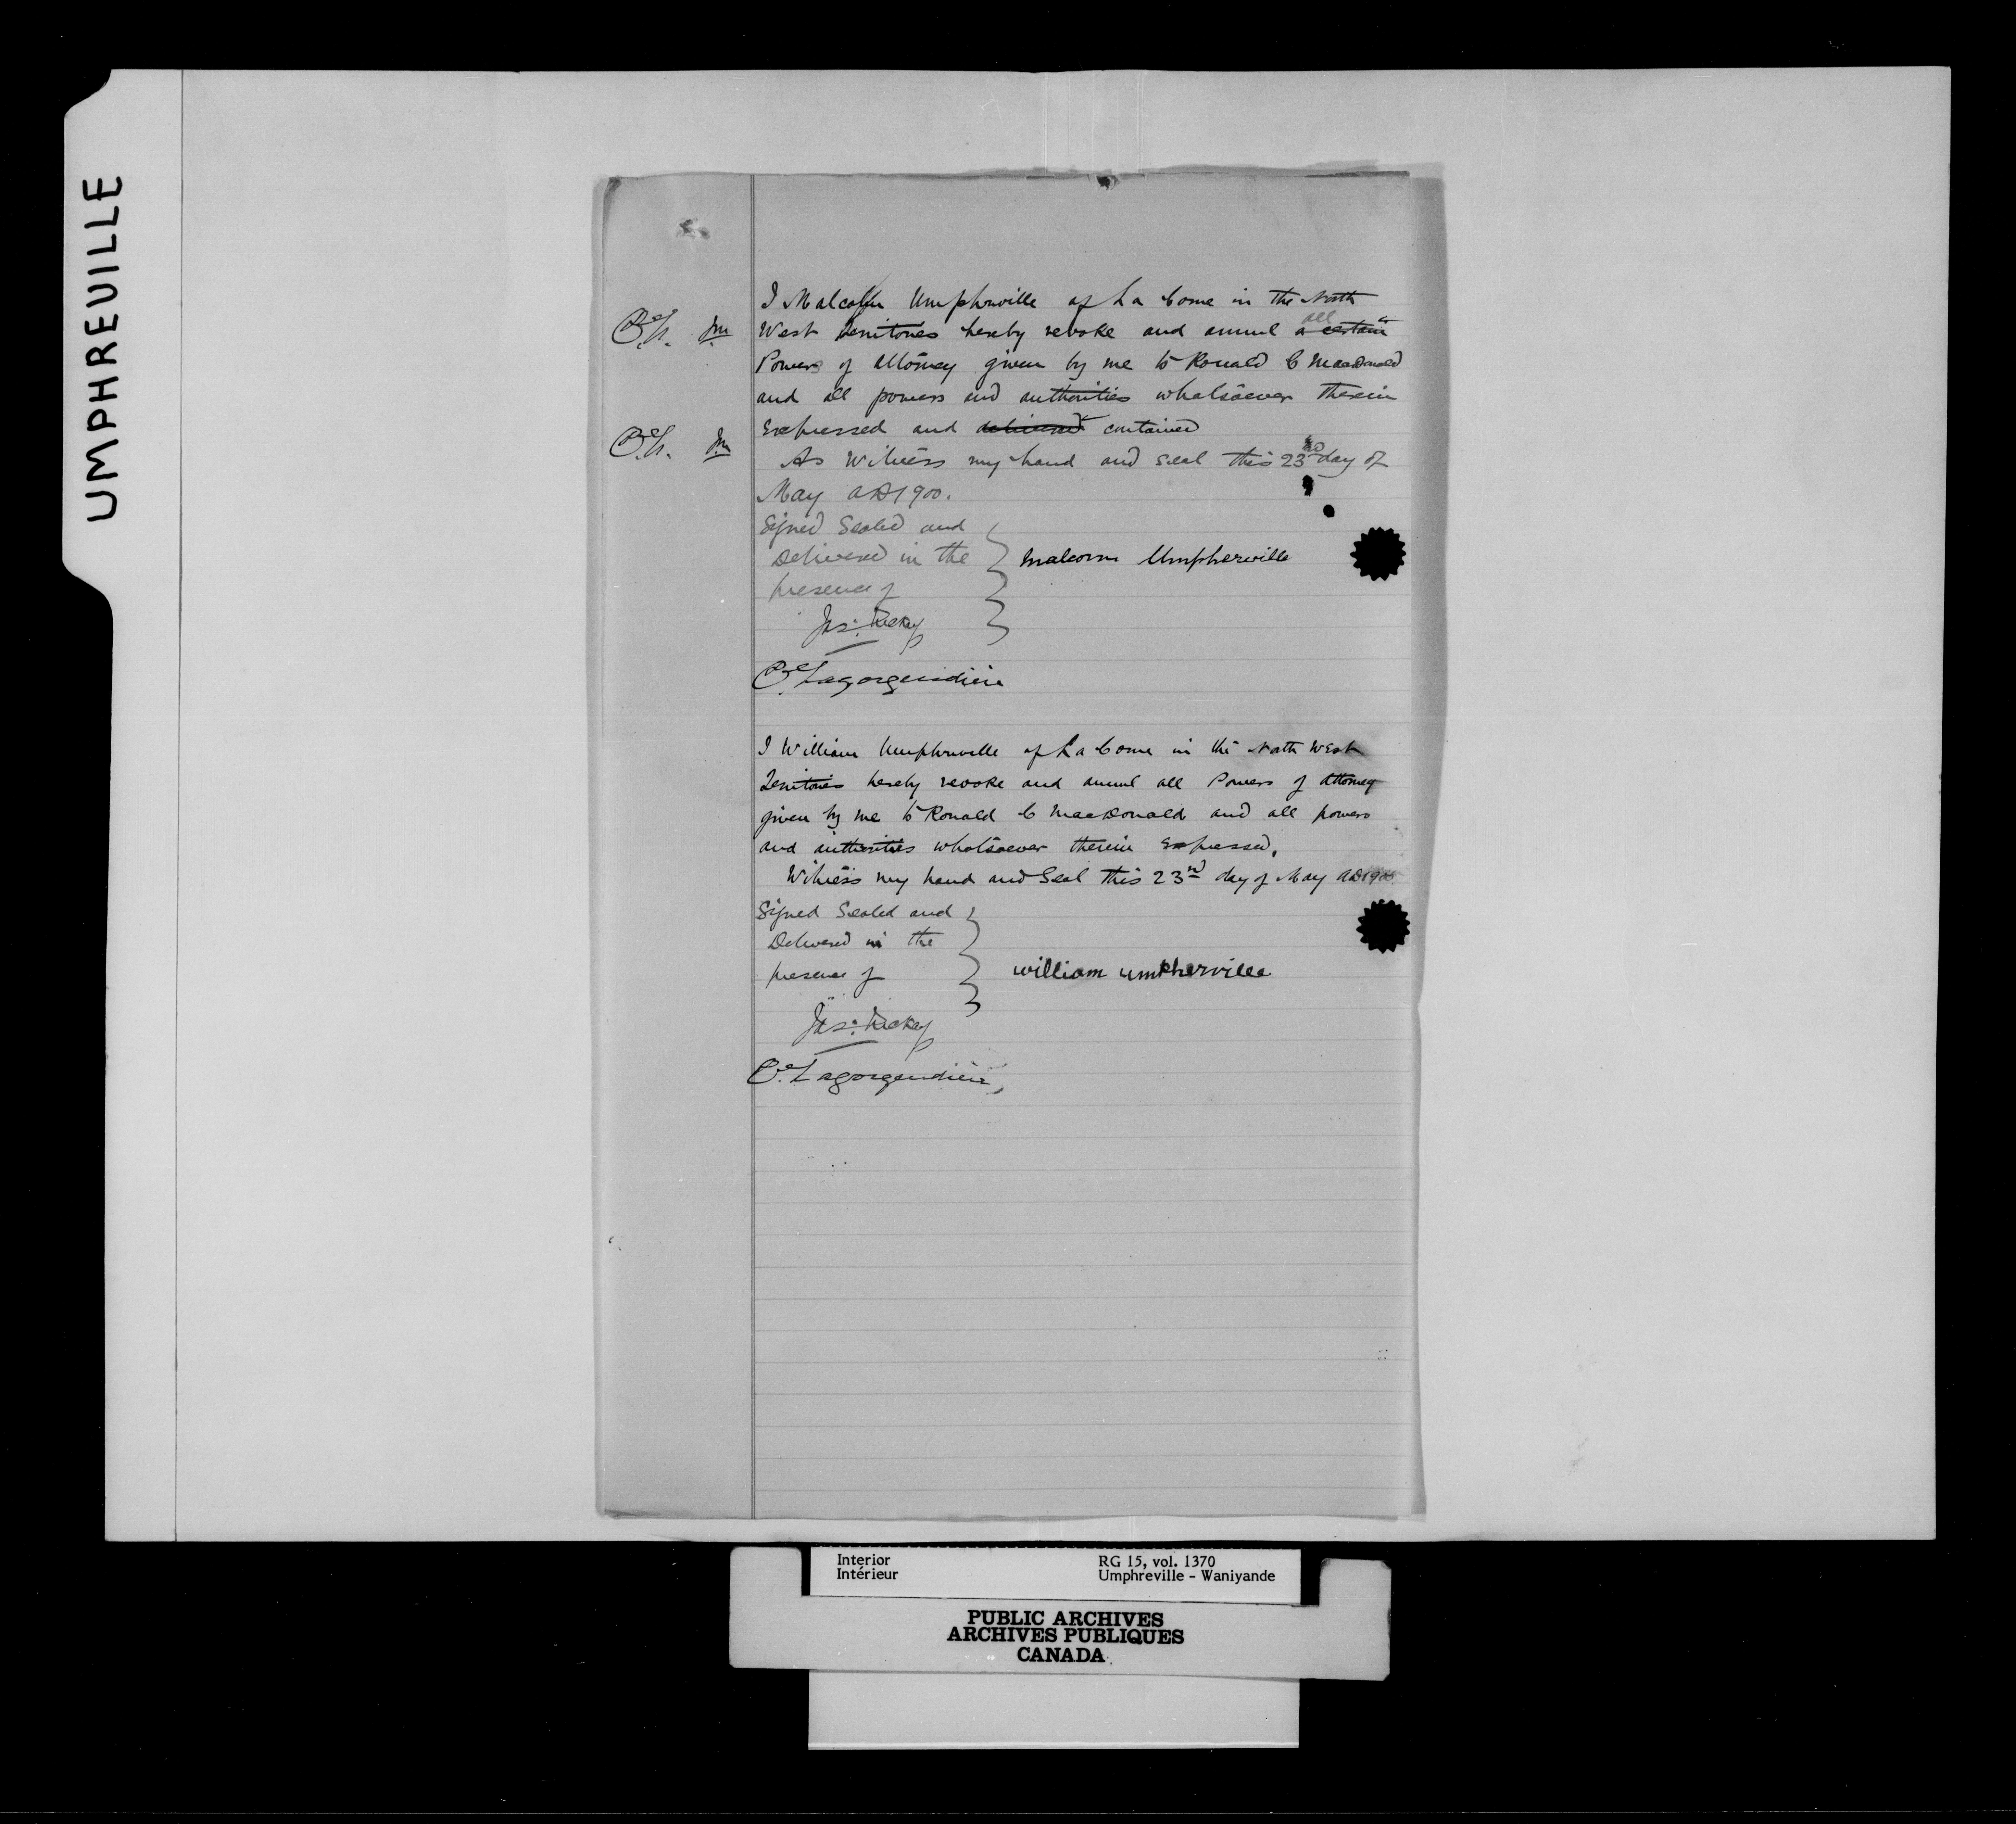 UMPHREVILLE
I Malcolm Umphruville of La Corne in the North
West Territories hereby revoke and annul all a certain
Powers of Attorney given by me to Ronald C MacDonald
and all powers and authorities whatsoever therein
Expressed and delivered contained
As Witness my hand and seal this 23rd day of
May AD 1900.
Signed Sealed and
Delivered in the
presence of
Malcom Umpherville
Jas:
O. Lagorgendière
I William Umphruville of La Corne in the North West
Territories hereby revoke and annul all Powers of Attorney
given by me to Ronald C MacDonald and all powers
and authorities whatsoever therein Expressed.
Witness my hand and Seal this 23rd day of May AD 1900
Signed Sealed and
Delivered in the
presence of
william umpherville
Jas:
O. Lagorgendière
Interior
Intérieur
RG 15, vol. 1370
Umphreville - Waniyande
PUBLIC ARCHIVES
ARCHIVES PUBLIQUES
CANADA